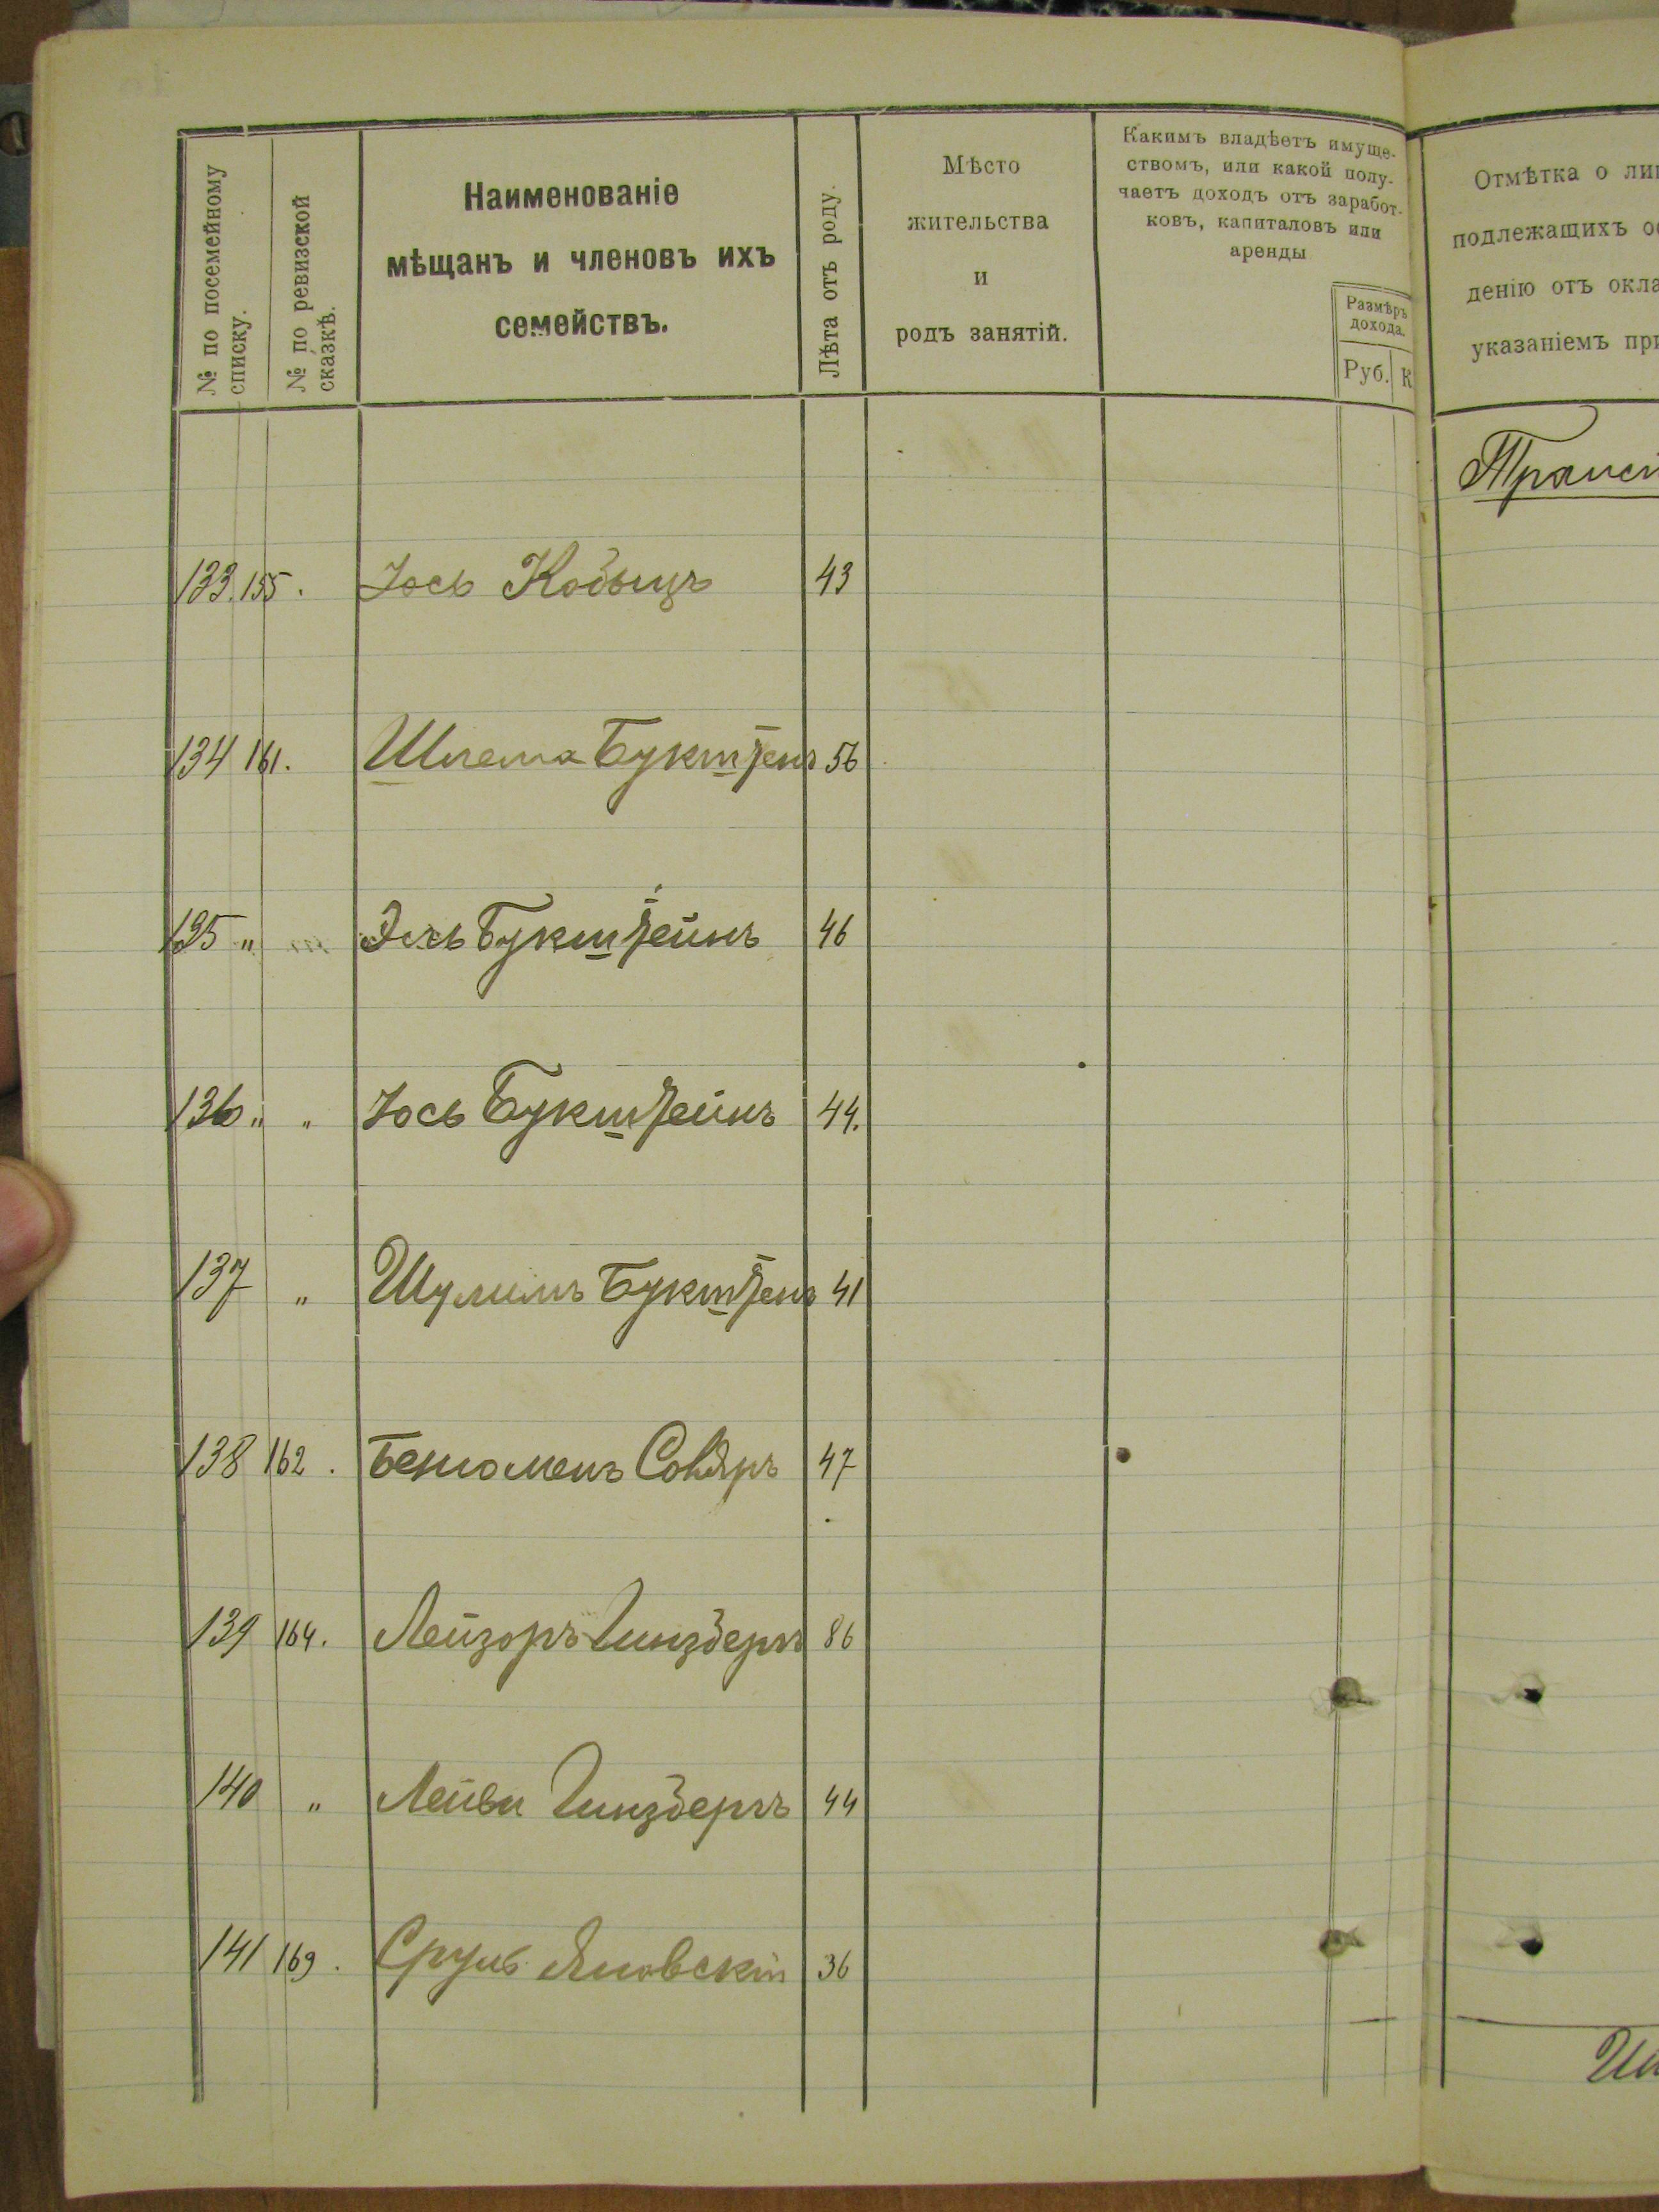 № по посемейному
списку.
№ по ревизской
сказкѣ.
Наименованіе
мѣщанъ и членовъ ихъ
семействъ.
Лѣта отъ роду.
Мѣсто
жительства
и
родъ занятій.
Какимъ владѣетъ имуще-
ствомъ, или какой полу-
чаетъ доходъ отъ заработ-
ковъ, капиталовъ или
аренды
Размѣръ
дохода.
Руб. К
Отмѣтка о ли
подлежащихъ о
денію отъ окла
указаніемъ при
Транс
133. 155. Іось Кобыцъ 43
134 161. Шлема Букштейнъ 56
135 " Эль Букштейнъ 46
136 " " Іось Букштейнъ 44.
137 " Шулимъ Букштейнъ 41
138 162. Беніоменъ 47
139 164. Лейзоръ Гинзбергъ 86
140 " Лейви Гинзбергъ 44
141 169. Сруль Яновскій 36